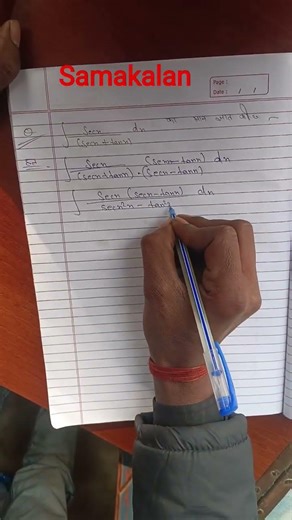 Samakalan
Page :
Date : / /
Q. ∫ secx/(secx+tanx) dx का मान ज्ञात
Sol. ∫ secx/(secx+tanx) · (secx-tanx)/(secx-tanx) dx
∫ secx (secx-tanx)/sec²x - tan²x dx